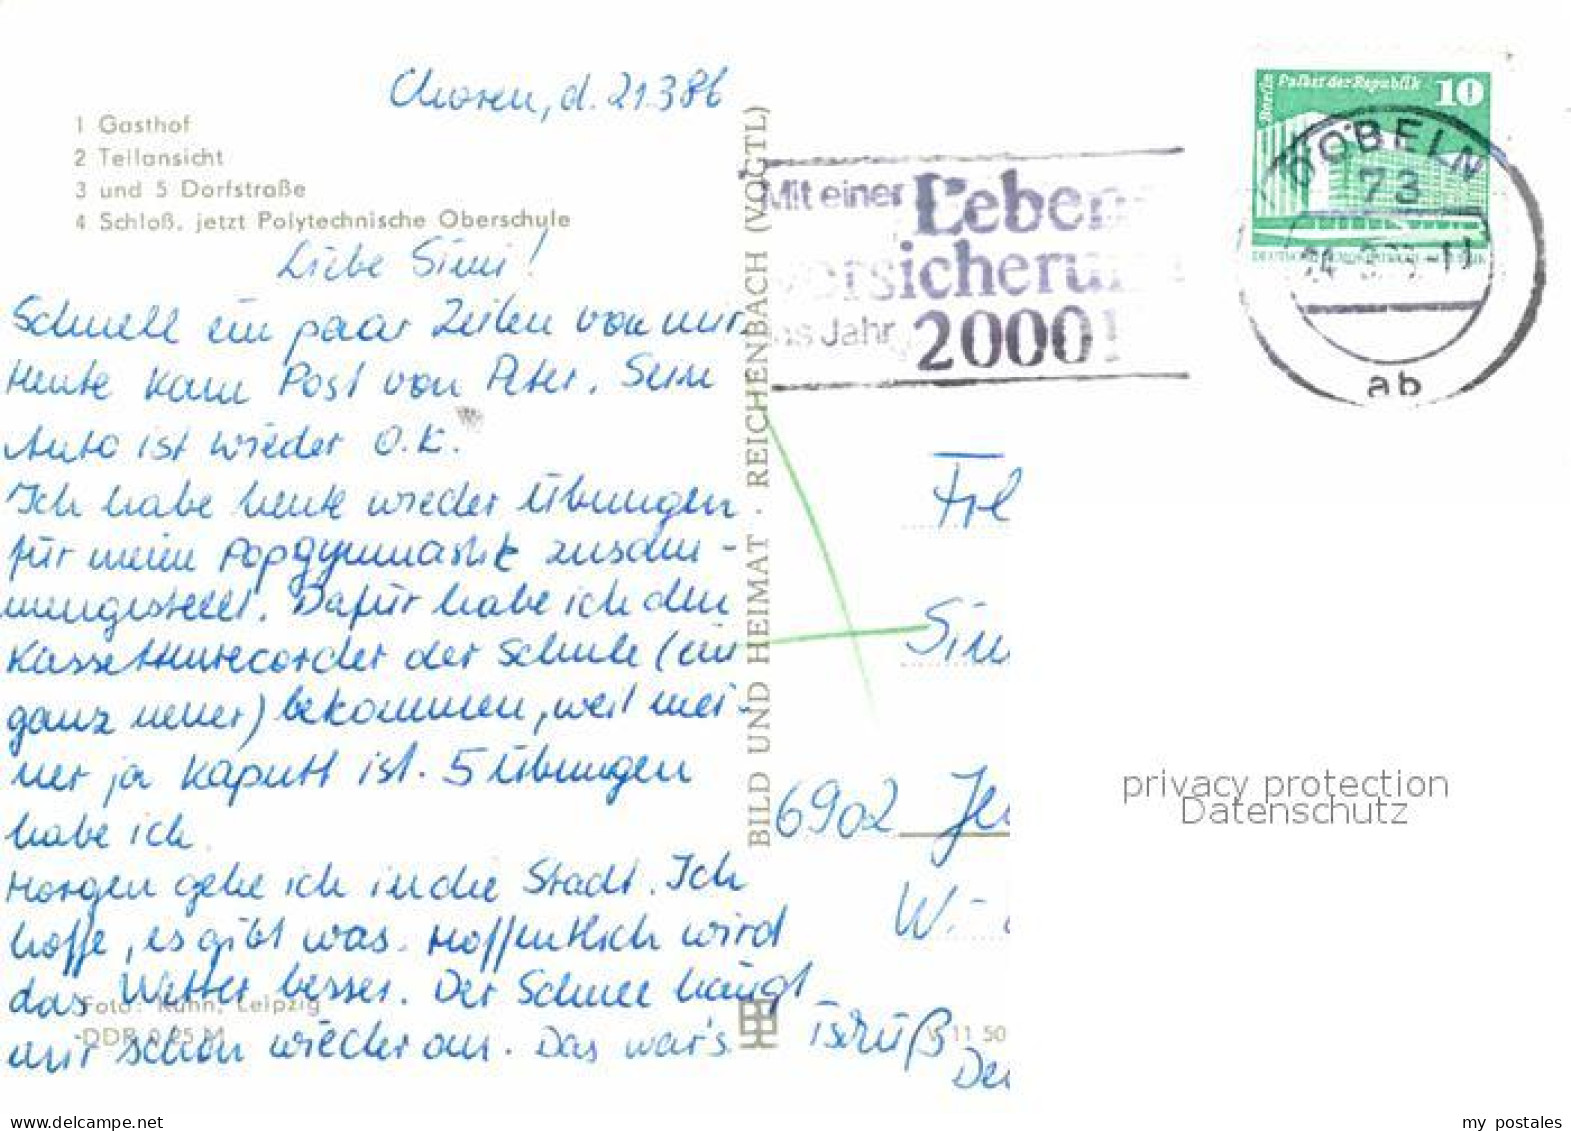 Choren, d. 21.3.86
1 Gasthof
2 Teilansicht
3 und 5 Dorfstraße
4 Schloß, jetzt Polytechnische Oberschule
Liebe Simi!
Schnell ein paar Zeilen von mir.
Heute kam Post von Peter. Sein
Auto ist wieder O.K.
Ich habe heute wieder Übungen
für meine Popgymnastik zusam-
mengestellt. Dafür habe ich den
Kassettenrecorder der Schule (ein
ganz neuer) bekommen, weil mei-
ner ja kaputt ist. 5 Übungen
habe ich.
Morgen gehe ich in die Stadt. Ich
hoffe, es gibt was. Hoffentlich wird
das Wetter besser. Der Schnee hängt
mir schon wieder an. Das war's.
Tschüß
Foto: Kühn, Leipzig
DDR 0,25 M
BILD UND HEIMAT · REICHENBACH (VOGTL)
V 11 50
Mit einer Lebens
versicherung
ins Jahr 2000!
Berlin Palast der Republik 10
DÖBELN
73
ab
Frl
6902 Je
W.-
privacy protection
Datenschutz
www.delcampe.net
my_postales